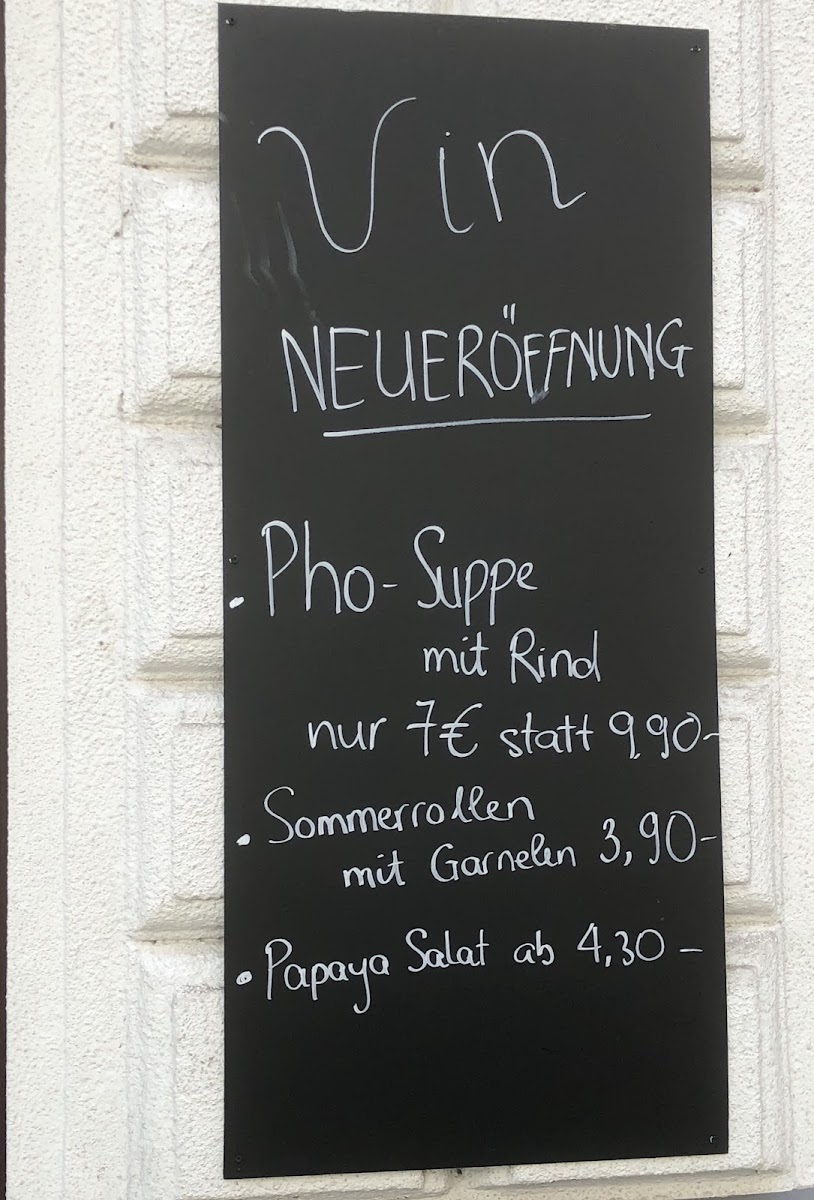 Vin
NEUERÖFFNUNG
• Pho-Suppe
mit Rind
nur 7€ statt 9,90-
• Sommerrollen
mit Garnelen 3,90-
• Papaya Salat ab 4,30-